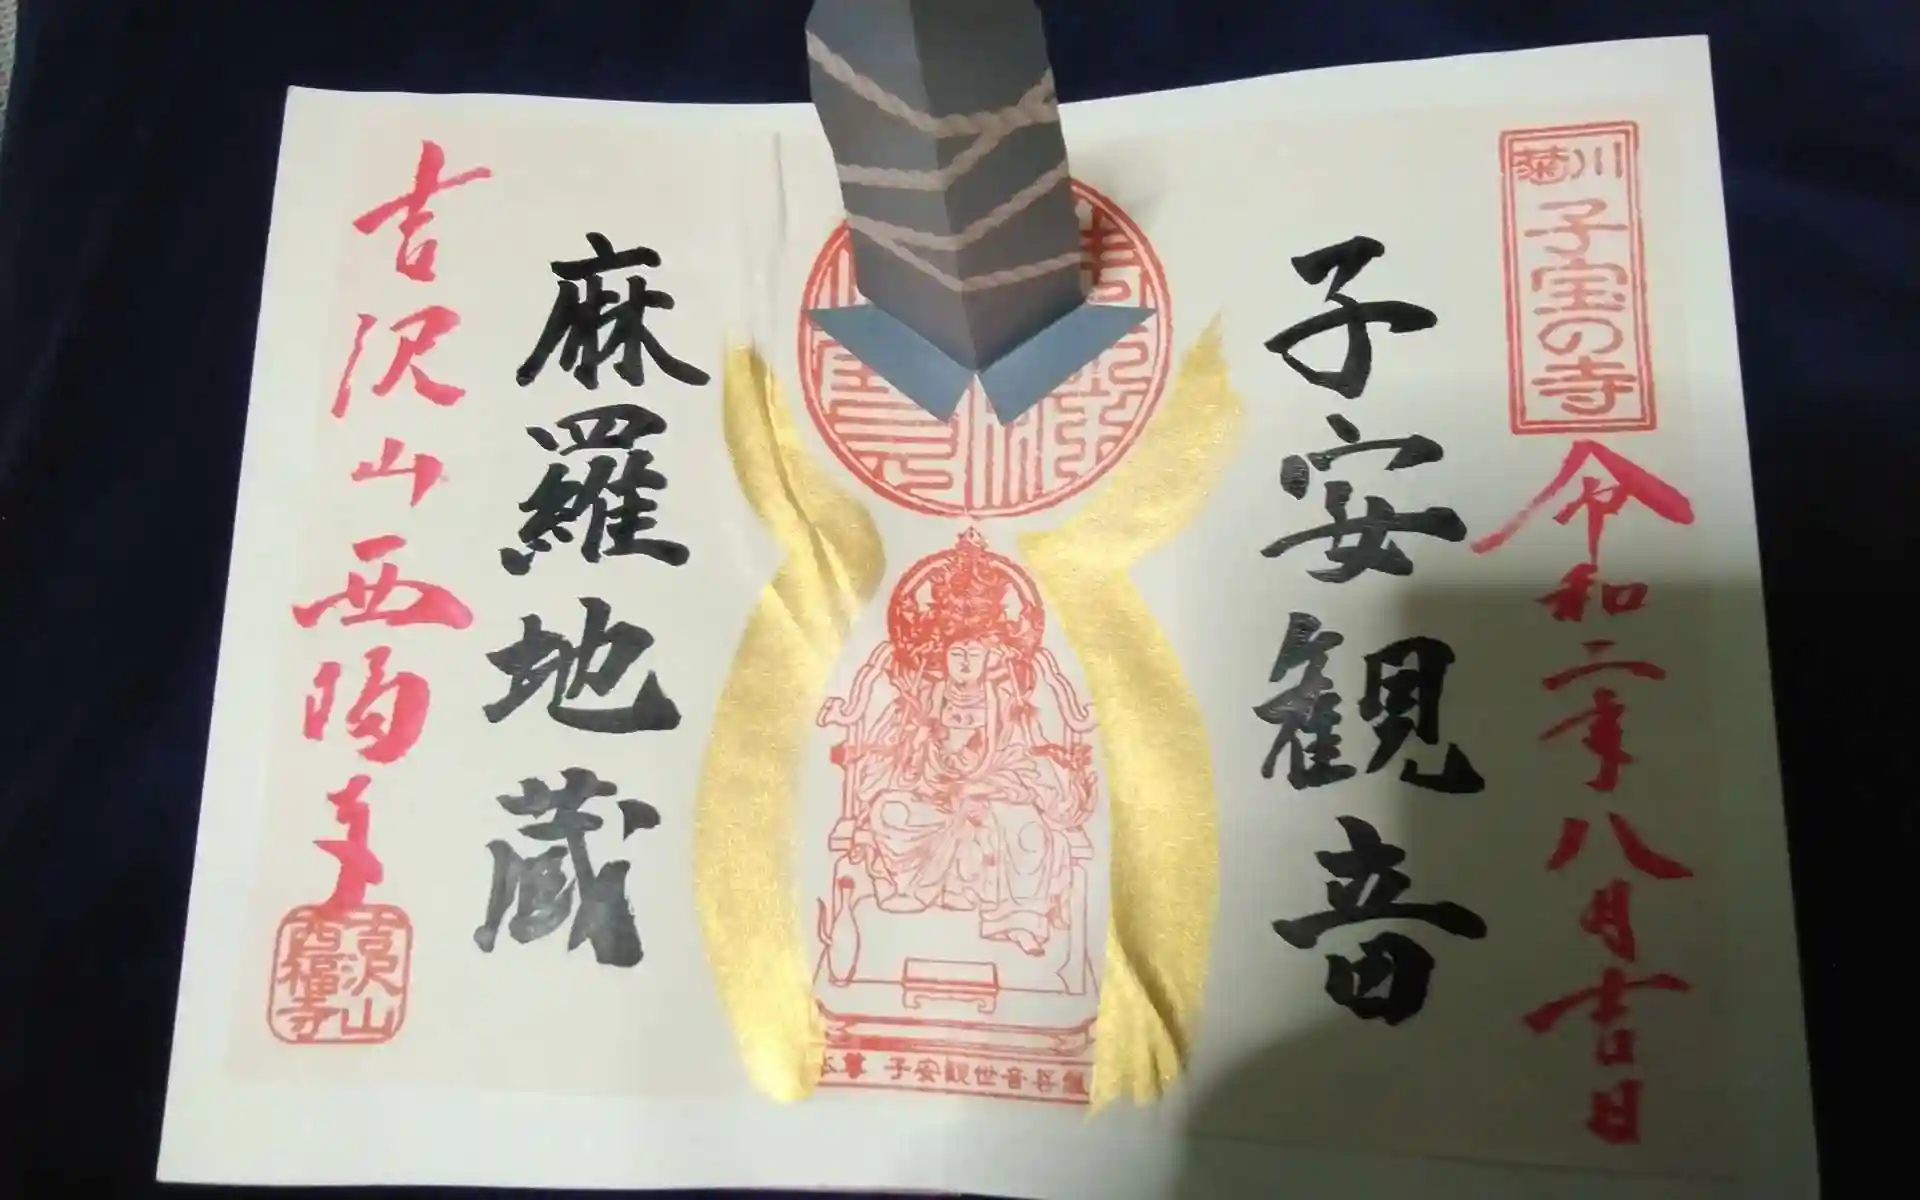 菊川
子宝の寺
令和二年八月吉日
子安観音
子安觀世音菩薩
麻羅地蔵
吉沢山西福寺
吉沢山
西福寺